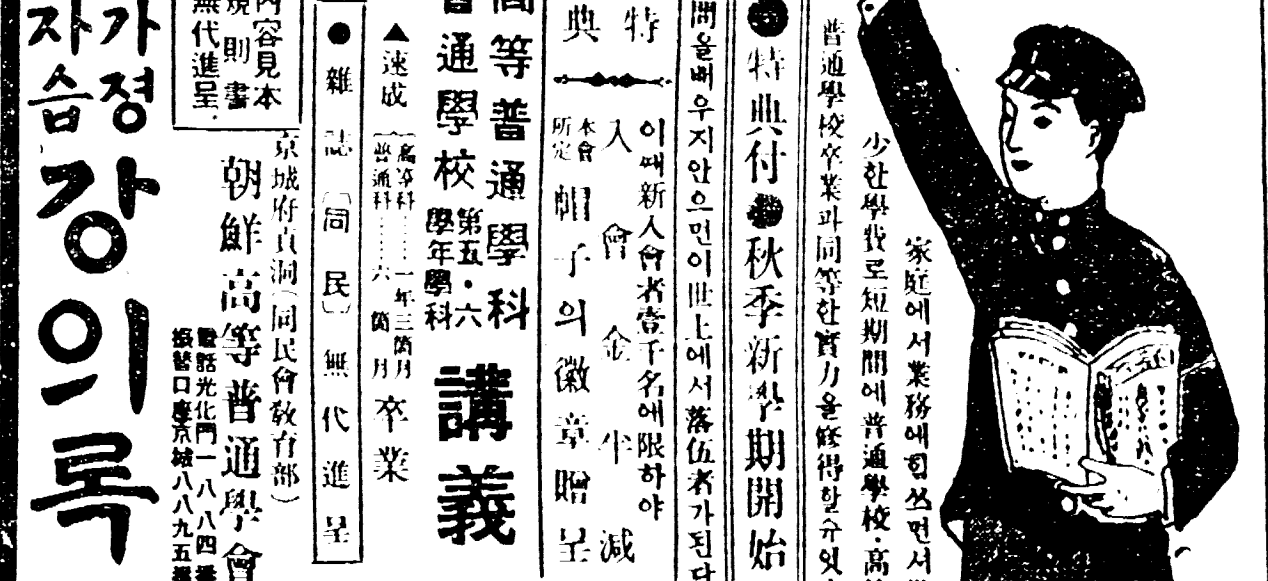 家庭에서業務에힘쓰면서
少한學費로短期間에普通學校·高
普通學校卒業과同等한實力을修得할수잇
特典付 秋季新學期開始
間올배우지안으면이世上에서落伍者가된다
特典
이때新入會者壹千名에限하야
入會金半減
本會所定 帽子의徽章贈呈
高等普通學科
普通學校 第五·六學年學科
講義
▲速成 (高等科……一年三箇月 普通科……六箇月) 卒業
●雜誌(同民)無代進呈
內容見本
規則書
無代進呈.
京城府貞洞(同民會敎育部)
朝鮮高等普通學會
電話光化門一八八四番
振替口座京城八八九五番
가졍
자습
강의록